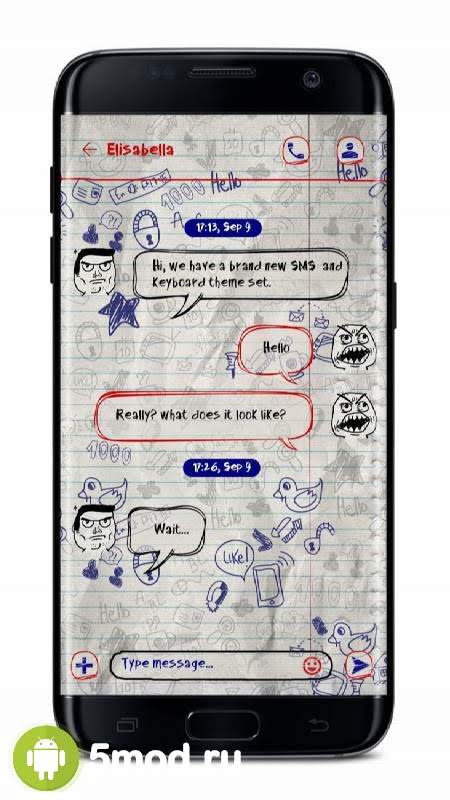 Elisabella
Hello
1000 Hello
17:13, Sep 9
Hi, we have a brand new SMS and
keyboard theme set.
Hello
Really? What does it look like?
1000
17:26, Sep 9
Wait...
Like!
Hello
Type message...
5mod.ru